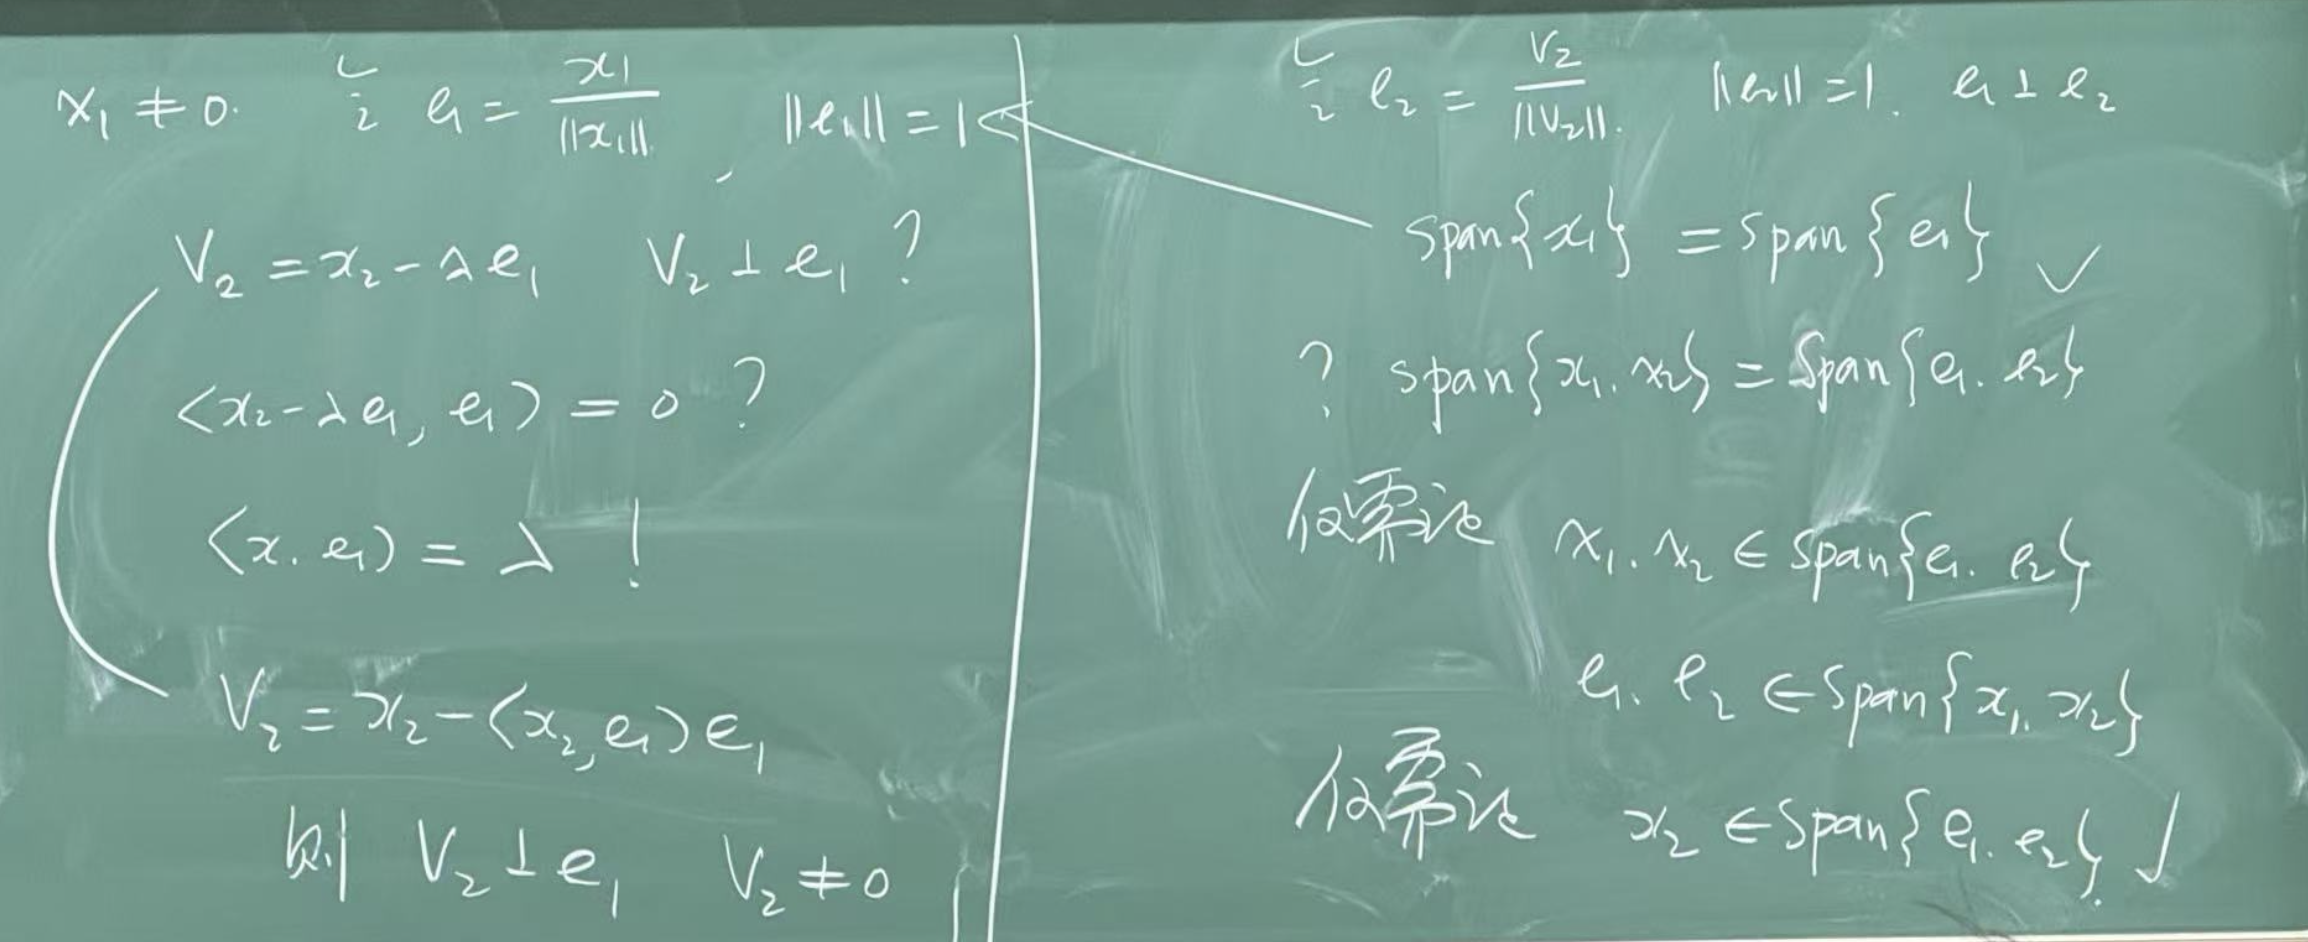 x₁ ≠ 0. 记 e₁ = x₁/||x₁||, ||e₁|| = 1
V₂ = x₂ - λe₁ V₂ ⊥ e₁ ?
<x₂ - λe₁, e₁> = 0 ?
<x. e₁> = λ !
V₂ = x₂ - <x₂, e₁>e₁
则 V₂ ⊥ e₁ V₂ ≠ 0
记 e₂ = V₂/||V₂||. ||e₂|| = 1. e₁ ⊥ e₂
span{x₁} = span{e₁} ✓
? span{x₁. x₂} = Span{e₁. e₂}
仅需证 x₁. x₂ ∈ Span{e₁. e₂}
e₁. e₂ ∈ Span{x₁. x₂}
仅需证 x₂ ∈ Span{e₁. e₂}. ✓